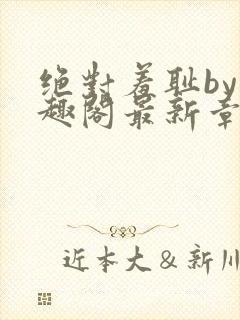 绝对羞耻by
趣阁最新章
近本大&新川